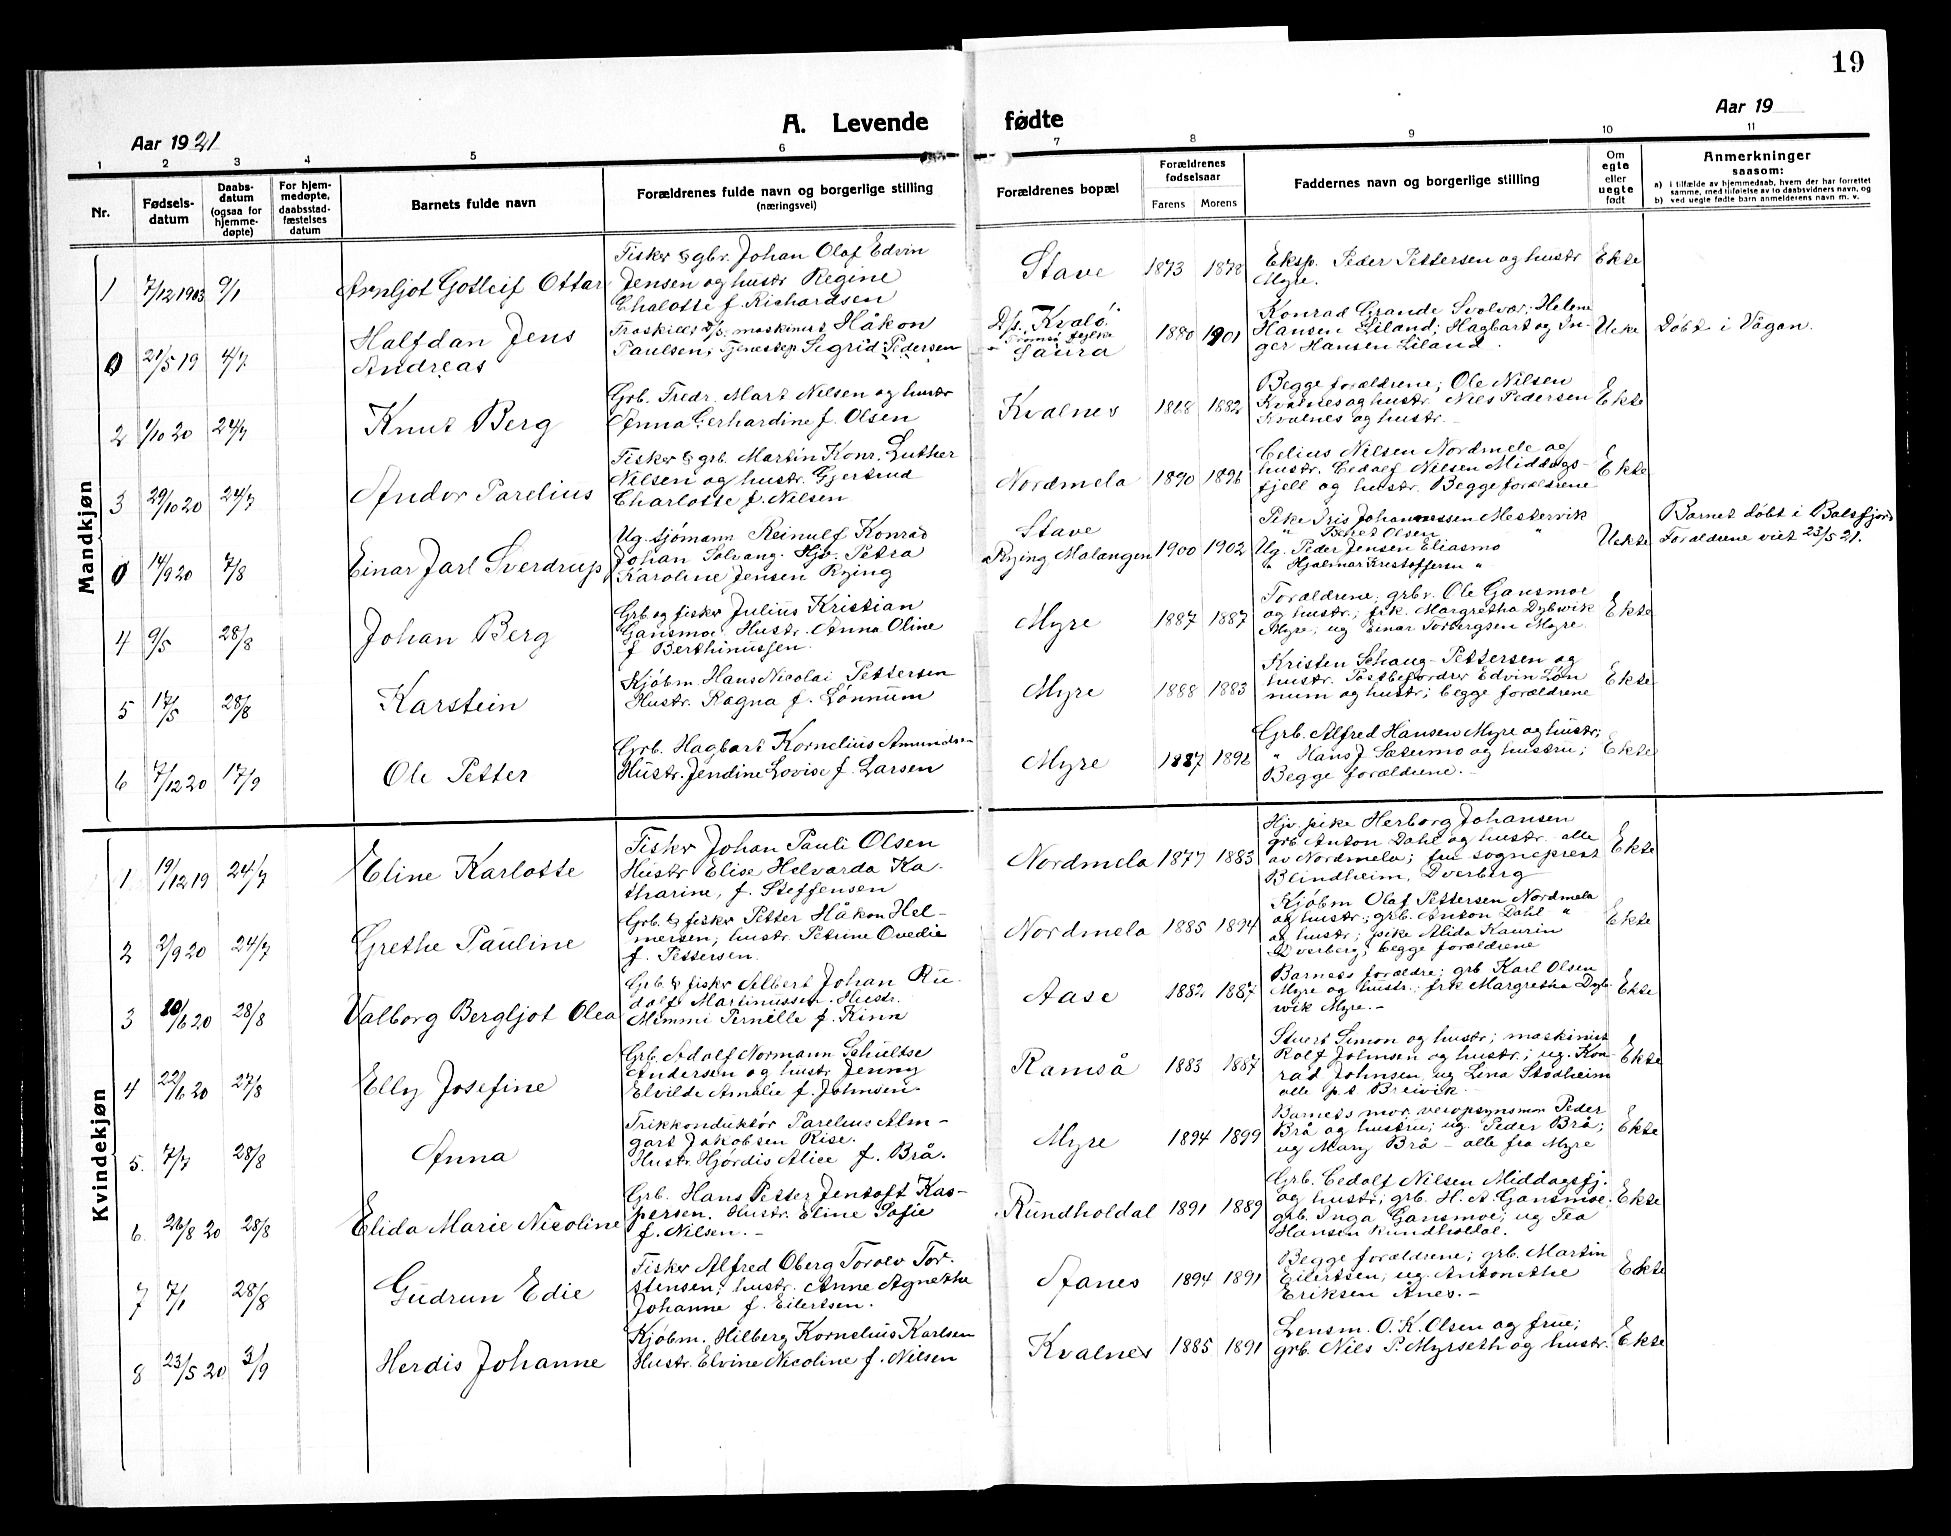 19
Aar 1921
A. Levende fødte
Aar 19
1 2 3 4 5 6 7 8 9 10 11
Nr.
Fødsels-
datum
Daabs-
datum
(ogsaa for
hjemme-
døpte)
For hjem-
medøpte,
daabsstad-
fæstelses
datum
Barnets fulde navn
Forældrenes fulde navn og borgerlige stilling
(næringsvei)
Forældrenes bopæl
Forældrenes
fødselsaar
Farens Morens
Faddernes navn og borgerlige stilling
Om
egte
eller
uegte
født
Anmerkninger
saasom:
a) i tilfælde av hjemmedaab, hvem der har forrettet
samme, med tilføielse av to daabsvidners navn, og
b) ved uegte fødte barn anmelderens navn m. v.
Mandkjøn
1 7/12 1903 9/1
Arnljot Gotleif Ottar
Fisker & gbr. Johan Olaf Edvin
Jensen og hustr Regine
Chalotte f. Richardsen
Stave 1873 1878
Eksp. Peder Pettersen og hustr
Myre.
Ekte
0 21/5 19 4/7
Halfdan Jens
Andreas
Fraskillt d/s. maskinist Håkon
Paulsen; Tjenestep Sigrid Pedersen
D/s. Kvalö.
Tromsö
Saura
1880 1901
Konrad Grande Svolvær; Helene
Hansen Liland; Hagbart og In-
ger Hansen Liland.
Uekte
Döbt i Vågan.
2 1/10 20 24/7
Knut Berg
Grb. Fredr. Mart Nilsen og hustr
Anna Gerhardine f. Olsen
Kvalnes 1868 1882
Begge forældrene; Ole Nilsen
Kvalnes og hustr. Niels Pedersen
Kvalnes og hustr. -
Ekte
3 29/10 20 24/7
Andor Parelius
Fisker & grb. Martin Konr. Luther
Nilsen og hustr. Gjertrud
Charlotte f. Nilsen
Nordmela 1890 1896
Celius Nilsen Nordmele og
hustr. Cedolf Nilsen Middags-
fjell og hustr. Begge forældrene
Ekte
0 14/9 20 7/8
Einar Jarl Sverdrup
Ug. sjömann Reinulf Konrad
Johan Solvang. Hjv. Petra
Karoline Jensen Rying
Stave
Rying Malangen
1900 1902
Pike Iris Johannessen Mestervik
" Olsen "
Ug. Peder Jensen Eliasmo
" Hjalmar Kristoffersen "
Uekte
Barnet döbt i Balsfjord
Foraldrene viet 23/5 21.
4 9/5 28/8
Johan Berg
Grb. og fisker Julius Kristian
Gansmoe. Hustr. Anna Oline
f Berthinussen.
Myre 1887 1887
Forældrene; grbr. Ole Gansmoe
og hustr.; frk. Margretha Dybwik
Myre; ug Einar Torbergsen Myre.
Ekte
5 17/5 28/8
Karstein
Kjöbm. Hans Nicolai Pettersen
Hustr. Ragna f. Lønnum
Myre 1888 1883
Kristen Schaug-Pettersen og
hustr. Postbefordrer Edvin Løn
num og hustr; begge forældrene
Ekte
6 7/12 20 17/9
Ole Petter
Grb. Hagbart Kornelius Amunds-
Hustr. Jendine Lovise f. Larsen
Myre 1887 1892
Grb. Alfred Hansen Myre og hustr;
" Hans J Sætermo og hustru;
Begge forældrene. -
Ekte
Kvindekjøn
1 19/12 19 24/7
Eline Karlotte
Fisker Johan Pauli Olsen
Hustr Elise Helvarda Ka-
tharine, f. Steffensen
Nordmela 1877 1883
Hjv. pike Herborg Johansen
grb Anton Dahl og hustr. alle
av Nordmela; fru sogneprest
Blindheim, Dverberg
Ekte
2 2/9 20 24/7
Grethe Pauline
Grb. & fisker Petter Håkon Hel-
mersen; hustr. Petrine Ovedie
f. Pettersen.
Nordmela 1885 1894
Kjöbm Olaf Pettersen Nordmela
og hustr.; grb. Anton Dahl "
og hustr; pike Alida Kaurin
Dverberg; begge forældrene
Ekte
3 10/6 20 28/8
Valborg Bergljot Olea
Grb. & fisker Albert Johan Ru-
dolf Martinussen. Hustr.
Mimmi Pernille f. Kinn
Aase 1882 1887
Barnets forældre; grb Karl Olsen
Myre og hustr.; frk Margretha Dyb-
wik Myre. -
Ekte
4 22/6 20 27/8
Elly Josefine
Grb. Adolf Normann Schultse
Andersen og hustr Jenny
Elvilde Amalie f. Johnsen.
Ramså 1883 1887
Stuert Simon og hustr; maskinist
Rolf Johnsen og hustr.; ug. Kon-
rad Johnsen, ug Lina Stodheim
alle p.t Breivik. -
Ekte
5. 7/7 28/8
Anna
Trikkonduktör Parelius Alm-
gart Jakobsen Rise.
Hustr. Hjördis Alice f. Brå.
Myre 1894 1899
Barnets mor, veiopsynsman Peder
Brå og hustru; ug. Peder Brå;
ug Mary Brå - alle fra Myre
Ekte
6. 26/8 20 28/8
Elida Marie Nicoline
Grb. Hans Petter Jentoft Kas-
persen. Hustr. Eline Sofie
f. Nilsen. -
Rundholdal 1891 1889
Grb. Cedolf Nilsen Middagsfj.
og hustr; grb. H. A. Gansmoe.
grb. Inga Gansmoe; ug Tea
Hansen Rundholdal.
Ekte
7 7/1 28/8
Gudrun Edie
Fisker Alfred Oberg Torolv Tor-
stensen; hustr. Anne Agnethe
Johanne f. Eilertsen.
Aanes 1894 1891
Begge forældrene; grb. Martin
Eilertsen; ug. Antonethe
Eriksen Ånes. -
Ekte
8 23/5 20 3/9
Herdis Johanne
Kjöbm. Hilberg Kornelius Karlsen
Hustr. Elvine Nicoline f. Nilsen
Kvalnes 1885 1891
Lensm. O. K. Olsen og frue;
grb. Niels P. Myrseth og hustr.
Ekte